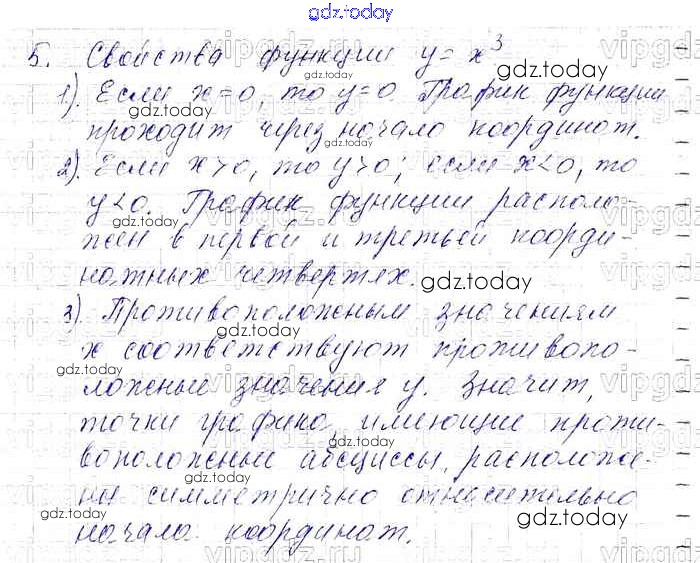 gdz.today
5. Свойства функции y = x³
1). Если x=0, то y=0. График функции
проходит через начало координат.
2). Если x>0, то y>0; если x<0, то
y<0. График функции располо-
жен в первой и третьей коорди-
натных четвертях.
3). Противоположным значениям
x соответствуют противопо-
ложные значения y. Значит,
точки графика, имеющие проти-
воположные абсциссы, расположе-
ны симметрично относительно
начала координат.